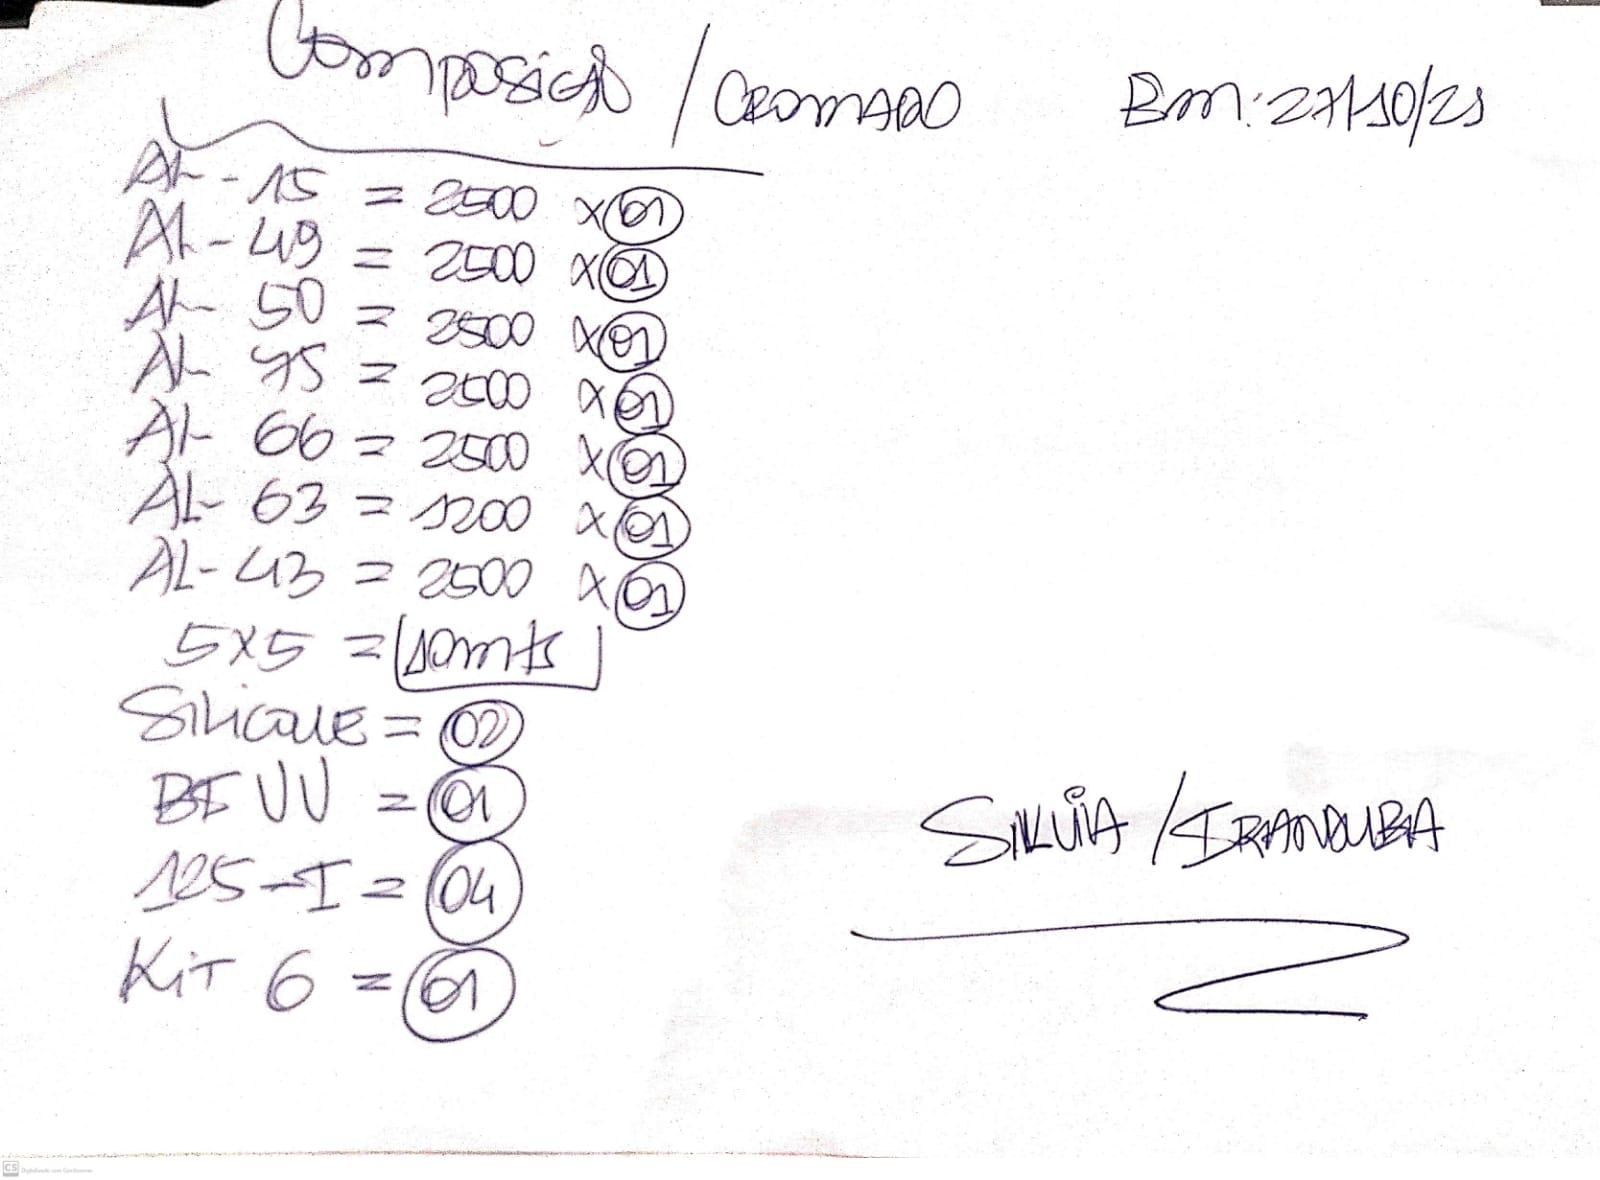 Composição / CROMADO
Bm: 27/10/21
AL-15 = 2500 x 01
AL-49 = 2500 x 01
AL- 50 = 2500 x 01
AL- 75 = 2500 x 01
AL- 66 = 2500 x 01
AL- 63 = 1200 x 01
AL-43 = 2500 x 01
5x5 = 10mts
SiLicoNE = 02
125-I = 04
KiT 6 = 01
SiLViA / IRANDUBA
CS Digitalizado com CamScanner